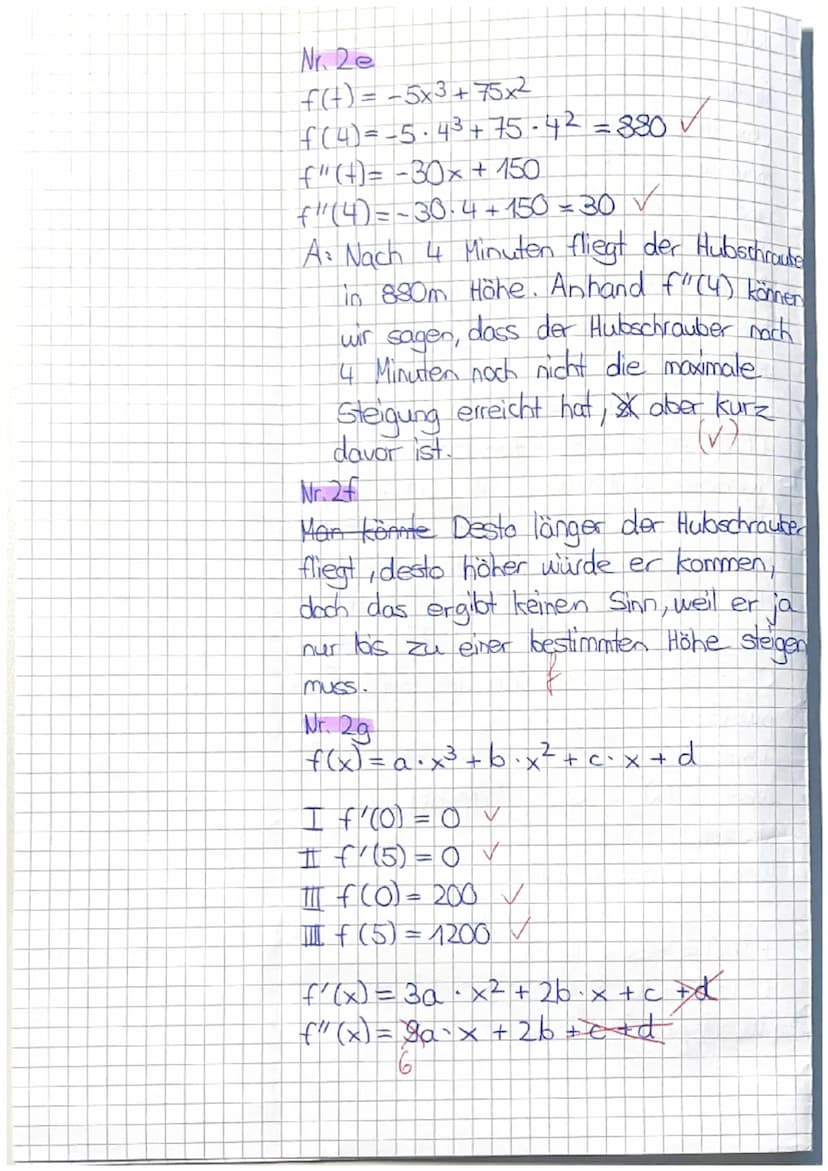 Nr. 2e
f(t) = -5x³ + 75x²
f(4) = -5 · 4³ + 75 · 4² = 880 ✓
f''(t) = -30x + 150
f''(4) = -30 · 4 + 150 = 30 ✓
A: Nach 4 Minuten fliegt der Hubschraube
in 880m Höhe. Anhand f''(4) können
wir sagen, dass der Hubschrauber nach
4 Minuten noch nicht die maximale
Steigung erreicht hat, aber kurz
davor ist. (✓)
Nr. 2f
Man könnte Desto länger der Hubschrauber
fliegt, desto höher würde er kommen,
doch das ergibt keinen Sinn, weil er ja
nur bis zu einer bestimmten Höhe steigen
muss. f
Nr. 2g
f(x) = a · x³ + b · x² + c · x + d
I f'(0) = 0 ✓
II f'(5) = 0 ✓
III f(0) = 200 ✓
IIII f(5) = 1200 ✓
f'(x) = 3a · x² + 2b · x + c + d
f''(x) = 9a · x + 2b + c + d
6